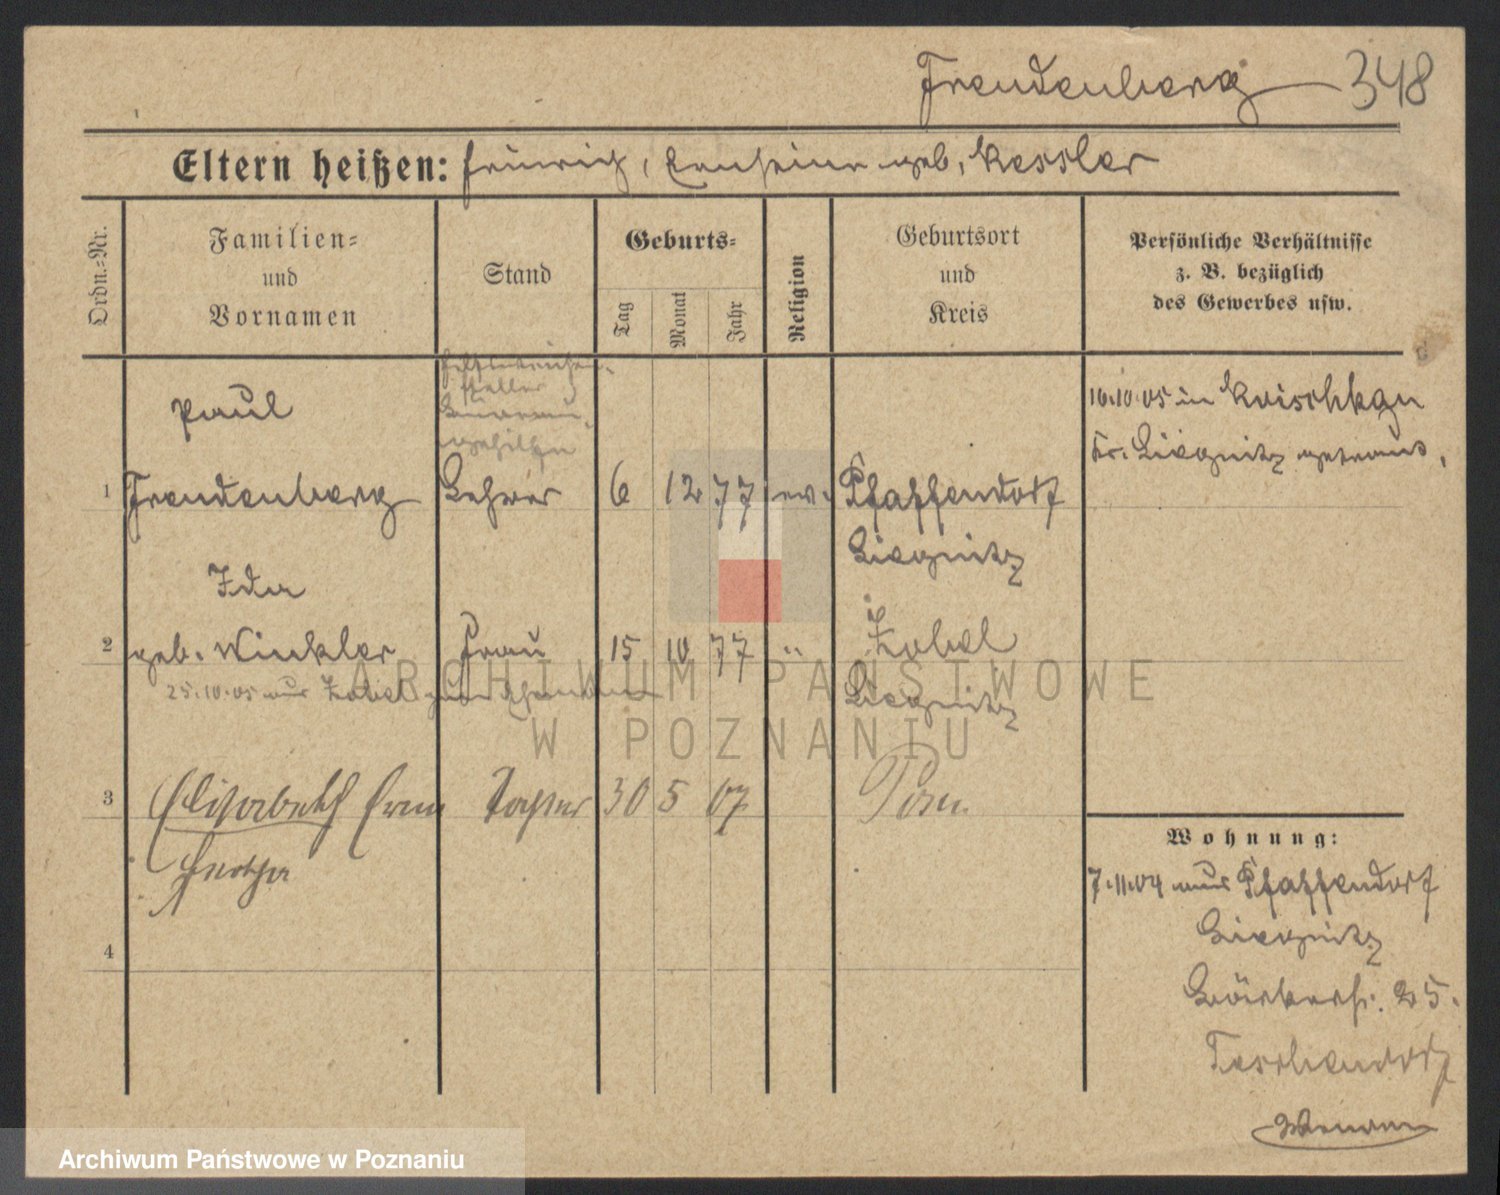 Freudenberg 348
Eltern heißen: Heinrich, Ernestine geb. Kessler
Ordn.-Nr.
Familien-
und
Vornamen
Stand
Geburts-
Tag
Monat
Jahr
Religion
Geburtsort
und
Kreis
Persönliche Verhältnisse
z. B. bezüglich
des Gewerbes usw.
Paul
1 Freudenberg Lehrer 6 12 77 ev. Pfaffendorf
Liegnitz
16.10.05 in Koischkau
Kr. Liegnitz getraut.
Ida
2 geb. Winkler Frau 15 10 77 " Zobel
Liegnitz
25.10.05 aus Zobel zum Ehemann
3 Elisabeth Erna Tochter 30 5 07 Posen
Hertha
4
Wohnung:
7.11.04 aus Pfaffendorf
Liegnitz
25.
Teschendorf
ARCHIWUM PAŃSTWOWE
W POZNANIU
Archiwum Państwowe w Poznaniu